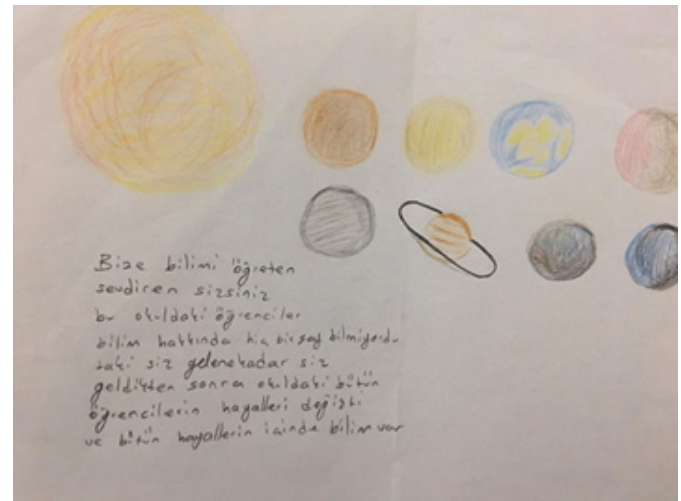 Bize bilimi öğreten
sevdiren sizsiniz
bu okuldaki öğrenciler
bilim hakkında hiç bir şey bilmiyordu
taki siz gelenekadar siz
geldikten sonra okuldaki bütün
öğrencilerin hayalleri değişti
ve bütün hayallerin içinde bilim var